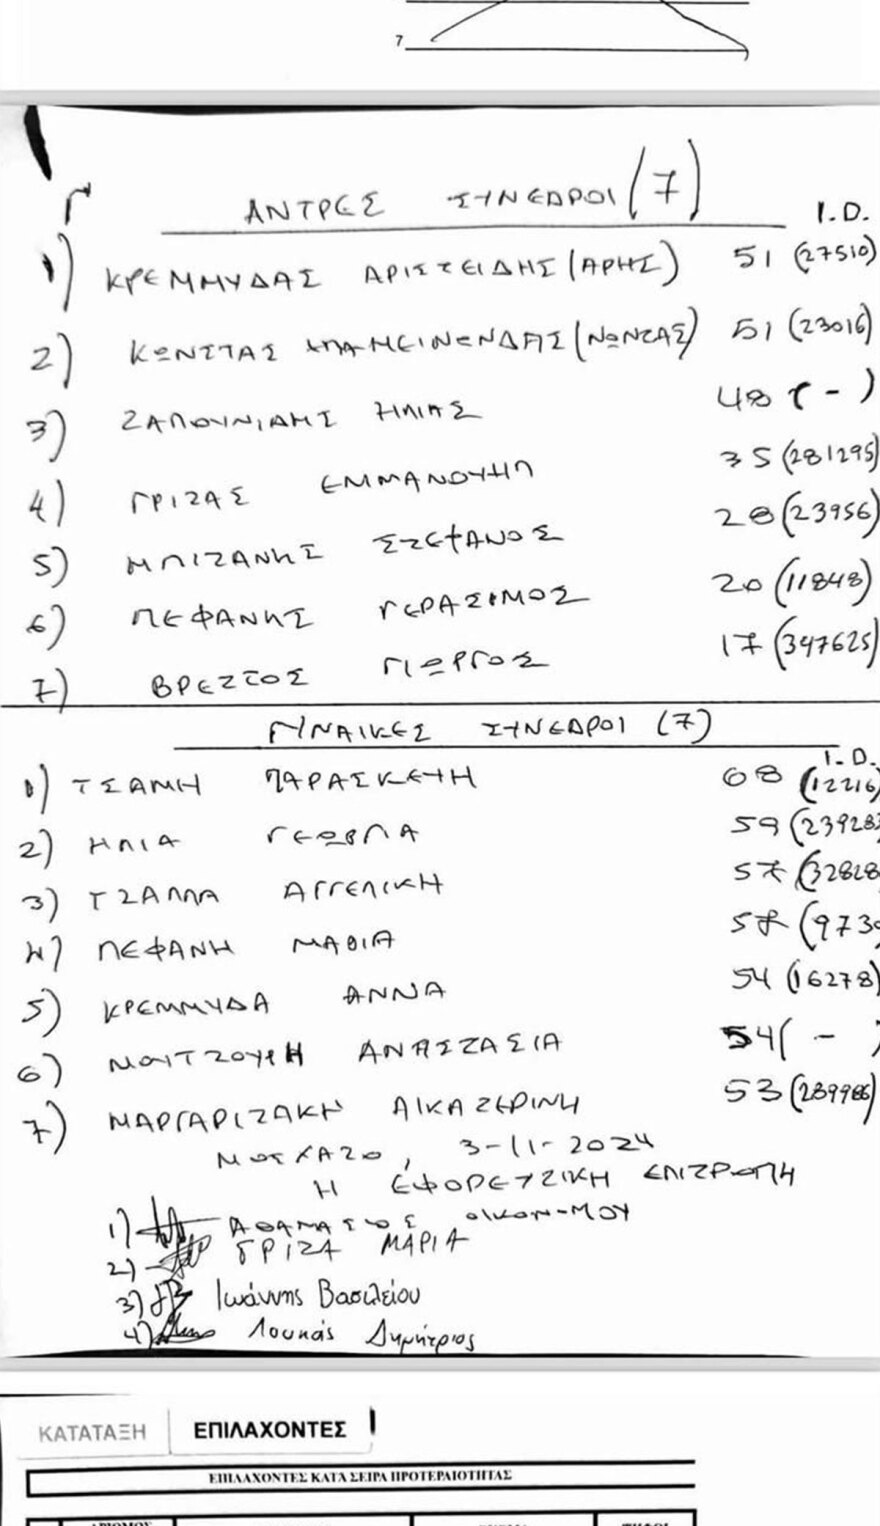 7
ΑΝΤΡΕΣ ΣΥΝΕΔΡΟΙ (7)
I.D.
1) ΚΡΕΜΜΥΔΑΣ ΑΡΙΣΤΕΙΔΗΣ (ΑΡΗΣ) 51 (27510)
2) ΚΩΝΣΤΑΣ (ΝΩΝΤΑΣ) 51 (23016)
3) ΖΑΠΟΥΝΙΔΗΣ ΗΛΙΑΣ 48 (-)
4) ΓΡΙΖΑΣ ΕΜΜΑΝΟΥΗΛ 35 (281295)
5) ΜΠΙΖΑΝΗΣ ΣΤΕΦΑΝΟΣ 28 (23956)
6) ΠΕΦΑΝΗΣ ΓΕΡΑΣΙΜΟΣ 20 (11848)
7) ΒΡΕΤΤΟΣ ΓΙΩΡΓΟΣ 17 (347625)
ΓΥΝΑΙΚΕΣ ΣΥΝΕΔΡΟΙ (7)
I.D.
1) ΤΣΑΜΗ ΠΑΡΑΣΚΕΥΗ 68 (12216)
2) ΗΛΙΑ ΓΕΩΡΓΙΑ 59 (23928)
3) ΤΖΑΛΛΑ ΑΓΓΕΛΙΚΗ 57 (32828
4) ΠΕΦΑΝΗ ΜΑΘΙΑ 57 (973
5) ΚΡΕΜΜΥΔΑ ΑΝΝΑ 54 (16278)
6) ΜΟΥΤΖΟΥΡΗ ΑΝΑΣΤΑΣΙΑ 54 ( - )
7) ΜΑΡΓΑΡΙΤΑΚΗ ΑΙΚΑΤΕΡΙΝΗ 53 (289986)
ΜΟΣΧΑΤΟ, 3-11-2024
Η ΕΦΟΡΕΥΤΙΚΗ ΕΠΙΤΡΟΠΗ
1) ΑΘΑΝΑΣΙΟΣ ΟΙΚΟΝ-ΜΟΥ
2) ΓΡΙΖΑ ΜΑΡΙΑ
3) Ιωάννης Βασιλείου
4) Λουκάς Δημήτριος
ΚΑΤΑΤΑΞΗ ΕΠΙΛΑΧΟΝΤΕΣ
ΕΠΙΛΑΧΟΝΤΕΣ ΚΑΤΑ ΣΕΙΡΑ ΠΡΟΤΕΡΑΙΟΤΗΤΑΣ
ΑΡΙΘΜΟΣ